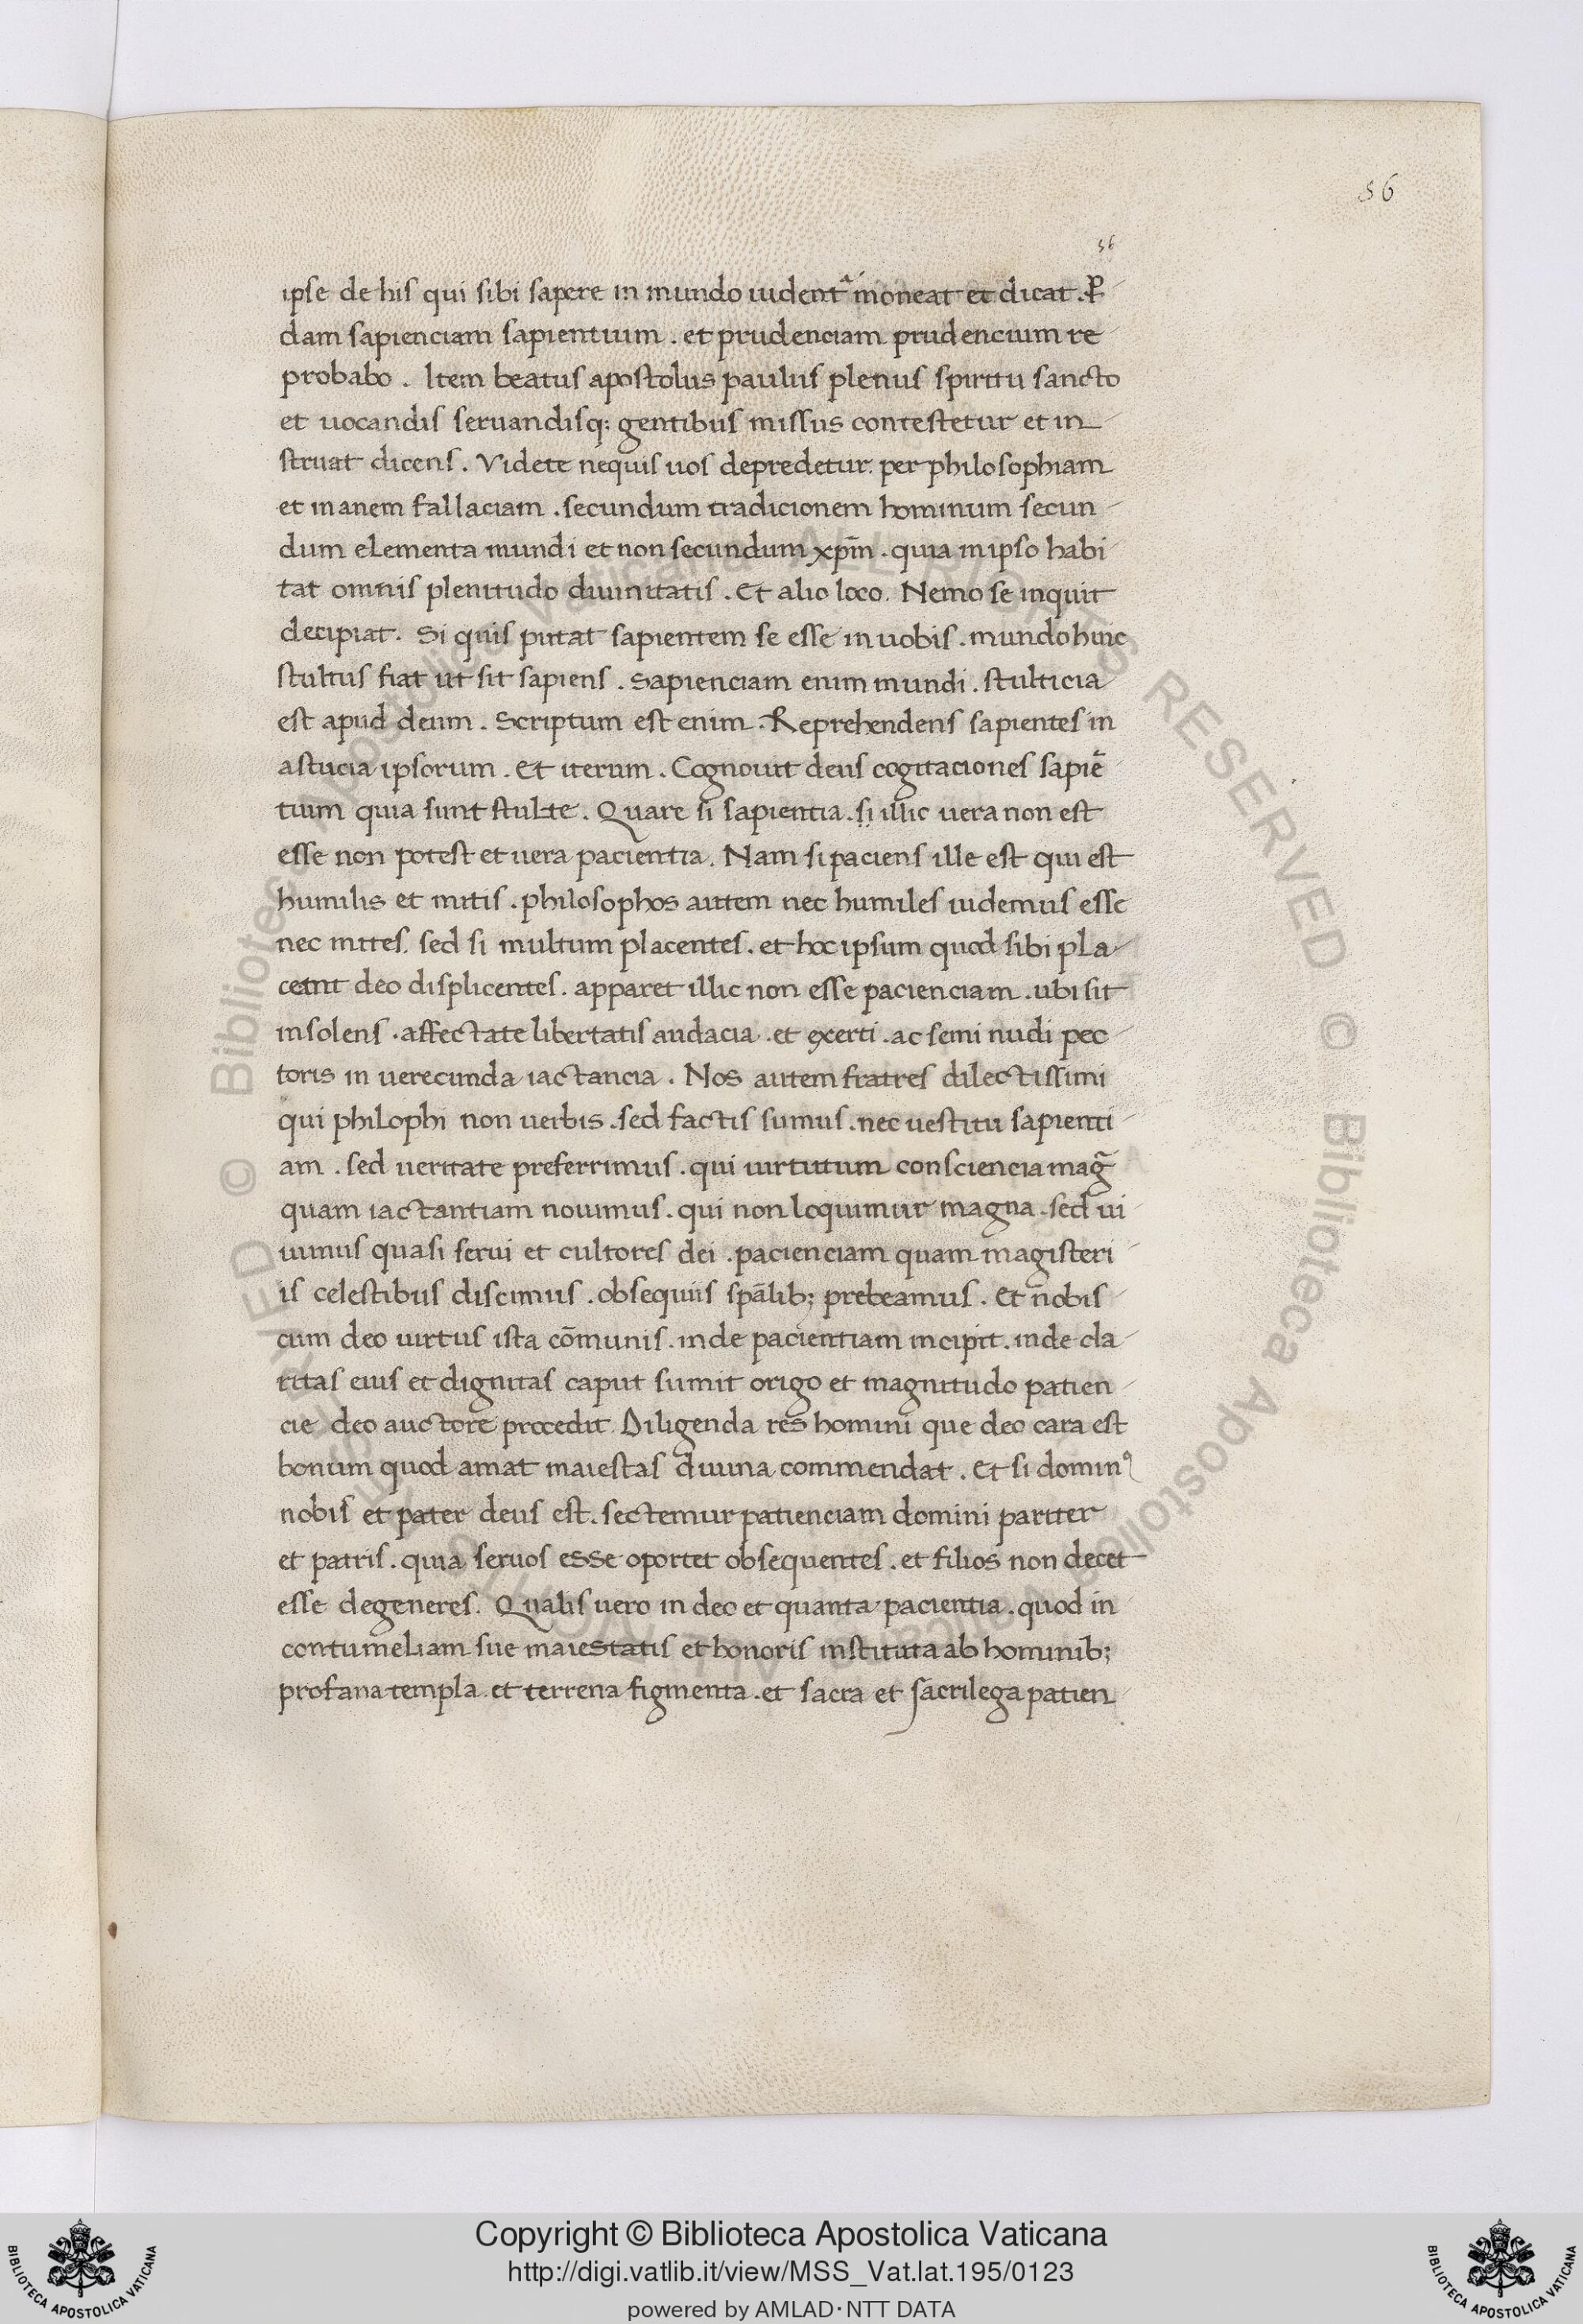 56
56
ipse de his qui sibi sapere in mundo uident᷑ moneat et dicat. P̱
dam sapienciam sapientium . et prudenciam prudencium re
probabo . Item beatus apostolus paulus plenus spiritu sancto
et uocandis seruandisq; gentibus missus contestetur et in
struat dicens . Videte nequis uos depredetur. per philosophiam
et inanem fallaciam . secundum tradicionem hominum secun
dum elementa mundi et non secundum xp̄m . quia in ipso habi
tat omnis plenitudo diuinitatis . Et alio loco . Nemo se inquit
decipiat . Si quis putat sapientem se esse in uobis . mundo huic
stultus fiat ut sit sapiens . Sapienciam enim mundi . stulticia
est apud deum . Scriptum est enim . Reprehendens sapientes in
astucia ipsorum . Et iterum . Cognouit deus cogitaciones sapiē
tium quia sunt stulte . Quare si sapientia . si illic uera non est
esse non potest et uera pacientia . Nam si paciens ille est qui est
humilis et mitis . philosophos autem nec humiles uidemus esse
nec mites . sed si multum placentes . et hoc ipsum quod sibi pla
cent deo displicentes . apparet illic non esse pacienciam . ubi sit
insolens . affectate libertatis audacia . et exerti . ac semi nudi pec
toris in uerecunda iactancia . Nos autem fratres dilectissimi
qui philophi non uerbis . sed factis sumus . nec uestitu sapienti
am . sed ueritate preferrimus . qui uirtutum consciencia mag̃
quam iactantiam nouimus . qui non loquimur magna . sed ui
uimus quasi serui et cultores dei . pacienciam quam magisteri
is celestibus discimus . obsequiis spālib; prebeamus . Et nobis
cum deo uirtus ista cōmunis . inde pacientiam incipit . inde cla
ritas eius et dignitas caput sumit origo et magnitudo patien
cie deo auctore procedit . Diligenda res homini que deo cara est
bonum quod amat maiestas diuina commendat . Et si dominꝰ
nobis et pater deus est . sectemur patienciam domini pariter
et patris . quia seruos esse oportet obsequentes . et filios non decet
esse degeneres . Qualis uero in deo et quanta pacientia . quod in
contumeliam sue maiestatis et honoris instituta ab hominib;
profana templa . et terrena figmenta . et sacra et sacrilega patien
Copyright © Biblioteca Apostolica Vaticana
http://digi.vatlib.it/view/MSS_Vat.lat.195/0123
powered by AMLAD·NTT DATA